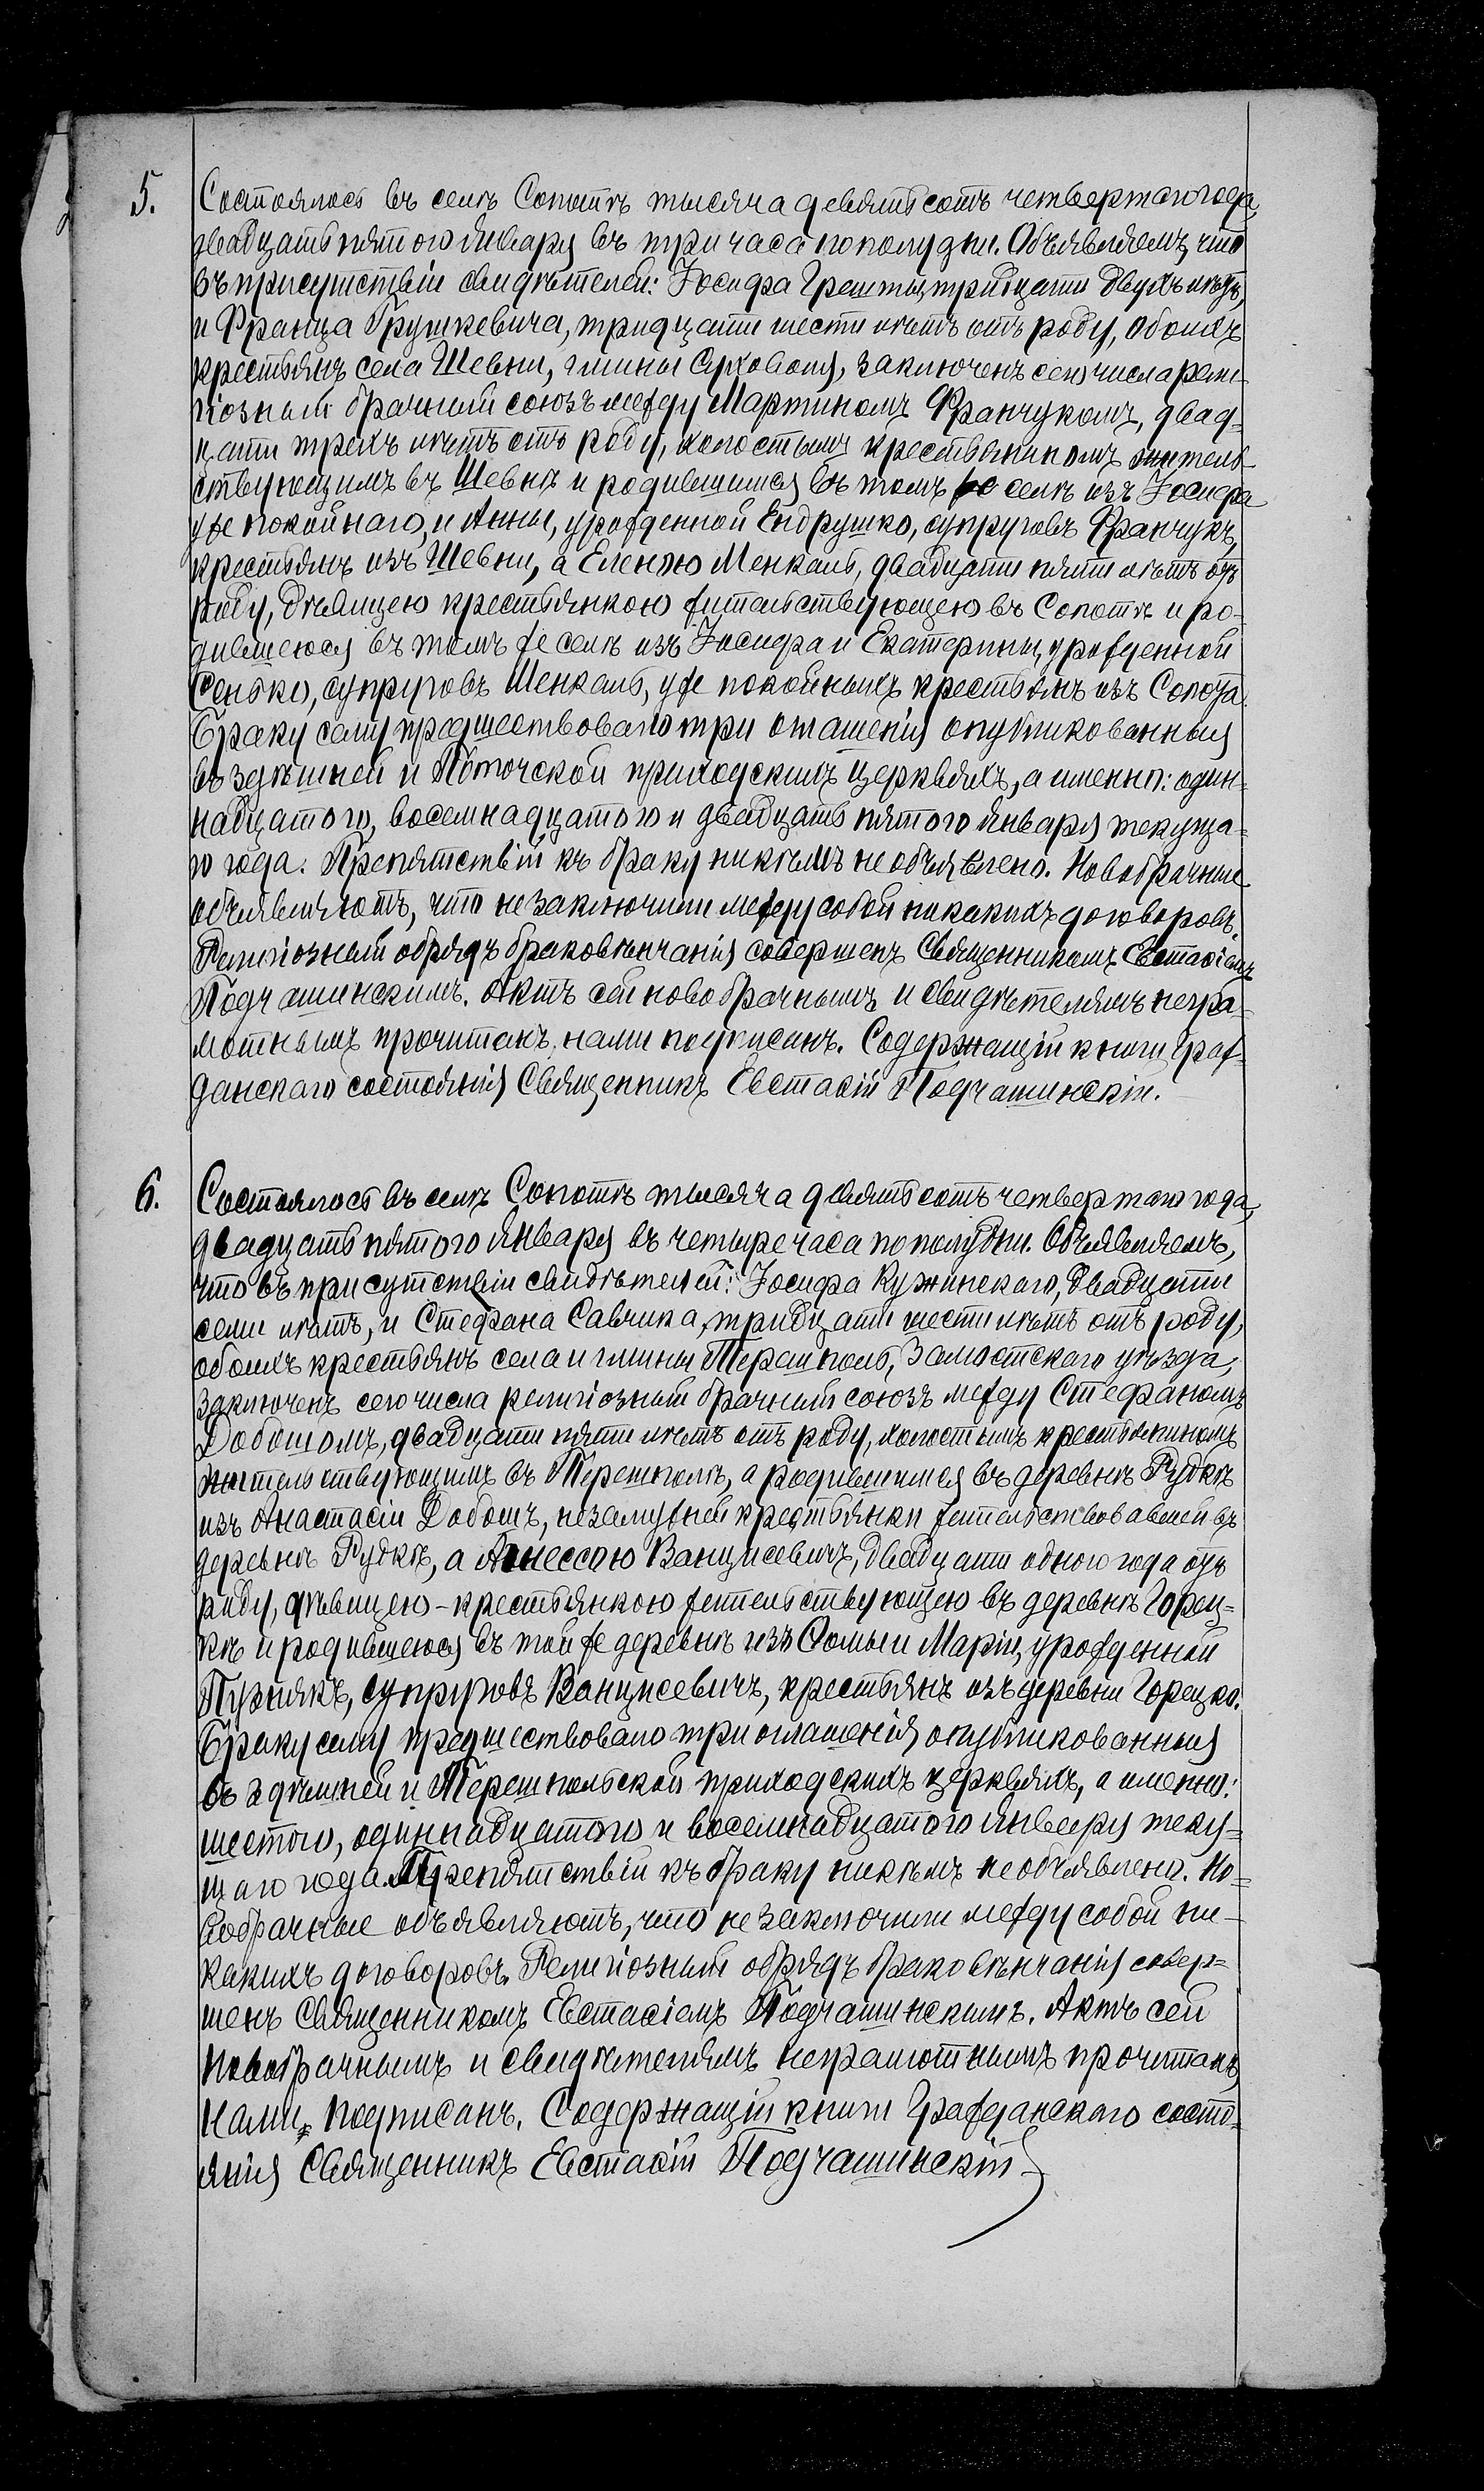 5. Состоялось въ селѣ Сопотѣ тысяча девятьсотъ четвертаго года,
двадцать пятого Января въ три часа пополудни. Объявляемъ, что
въ присутствіи свидѣтелей: Іосифа Грешты, тридцати двухъ лѣтъ,
и Франца Грушкевича, тридцати шести лѣтъ отъ роду, обоихъ
крестьянъ села Шевни, гмины Суховоля, заключенъ сего числа рели-
гіозный брачный союзъ между Мартиномъ Франчукомъ, двад-
цати трехъ лѣтъ отъ роду, холостымъ крестьяниномъ житель-
ствующимъ въ Шевнѣ и родившимся въ томъ же селѣ изъ Іосифа
уже покойнаго, и Анны, урожденной Ендрушко, супруговъ Франчукъ,
крестьянъ изъ Шевни, а Еленою Менкаль, двадцати пяти лѣтъ отъ
роду, дѣвицею крестьянкою жительствующею въ Сопотѣ и ро-
дившеюся въ томъ же селѣ изъ Іосифа и Екатерины, урожденной
Сенько, супруговъ Менкаль, уже покойныхъ крестьянъ изъ Сопота.
Браку сему предшествовало три оглашенія опубликованныя
въ здѣшней и Поточской приходскихъ церквяхъ, а именно: один-
надцатого, восемнадцатого и двадцать пятого Января текуща-
го года. Препятствій къ браку никѣмъ не объявлено. Новобрачные
объявляютъ, что не заключили между собой никакихъ договоровъ.
Религіозный обрядъ браковѣнчанія совершенъ Священникомъ Евстаѳіемъ
Подчашинскимъ. Актъ сей новобрачнымъ и свидѣтелямъ негра-
мотнымъ прочитанъ, нами подписанъ. Содержащій книги Граж-
данскаго состоянія Священникъ Евстаѳій Подчашинскій.
6. Состоялось въ селѣ Сопотѣ тысяча девятьсотъ четвертаго года,
двадцать пятого Января въ четыре часа пополудни. Объявляемъ,
что въ присутствіи свидѣтелей: Іосифа Кужинскаго, двадцати
семи лѣтъ, и Стефана Савчика, тридцати шести лѣтъ отъ роду,
обоихъ крестьянъ села и гмины Терешполь, Замостскаго уѣзда,
заключенъ сего числа религіозный брачный союзъ между Стефаномъ
Добошомъ, двадцати пяти лѣтъ отъ роду, холостымъ крестьяниномъ
жительствующимъ въ Терешполѣ, а родившимся въ деревнѣ Рудкѣ
изъ Анастасіи Добошъ, незамужней крестьянки жительствовавшей въ
деревнѣ Рудкѣ, а Агнессою Ванцисевичъ, двадцати одного года отъ
роду, дѣвицею-крестьянкою жительствующею въ деревнѣ Горец-
кѣ и родившеюся въ той же деревнѣ изъ Ѳомы и Маріи, урожденной
Пузнякъ, супруговъ Ванцисевичъ, крестьянъ изъ деревни Горецко.
Браку сему предшествовало три оглашенія, опубликованныя
въ здѣшней и Терешпольской приходскихъ церквяхъ, а именно:
шестого, одиннадцатого и восемнадцатого Января теку-
щаго года. Препятствій къ браку никѣмъ не объявлено. Но-
вобрачные объявляютъ, что не заключили между собой ни-
какихъ договоровъ. Религіозный обрядъ браковѣнчанія совер-
шенъ Священникомъ Евстаѳіемъ Подчашинскимъ. Актъ сей
новобрачнымъ и свидѣтелямъ неграмотнымъ прочитанъ,
нами подписанъ. Содержащій книги Гражданскаго состо-
янія Священникъ Евстаѳій Подчашинскій